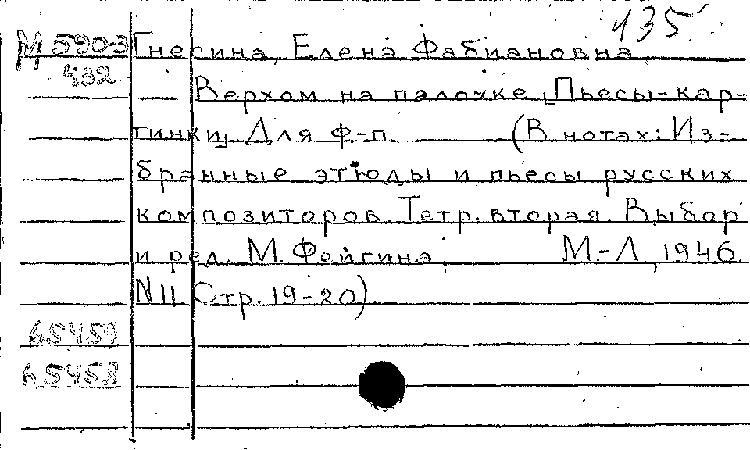 135
М 590-3 Гнесина, Елена Фабиановна
432
Верхом на палочке [Пьесы-кар-
тинки] Для ф-п. (В нотах: Из-
бранные этюды и пьесы русских
композиторов. Тетр. вторая. Выбор
и ред. М. Фейгина. М-Л, 1946.
N 11 Стр. 19-20)
65459
65458